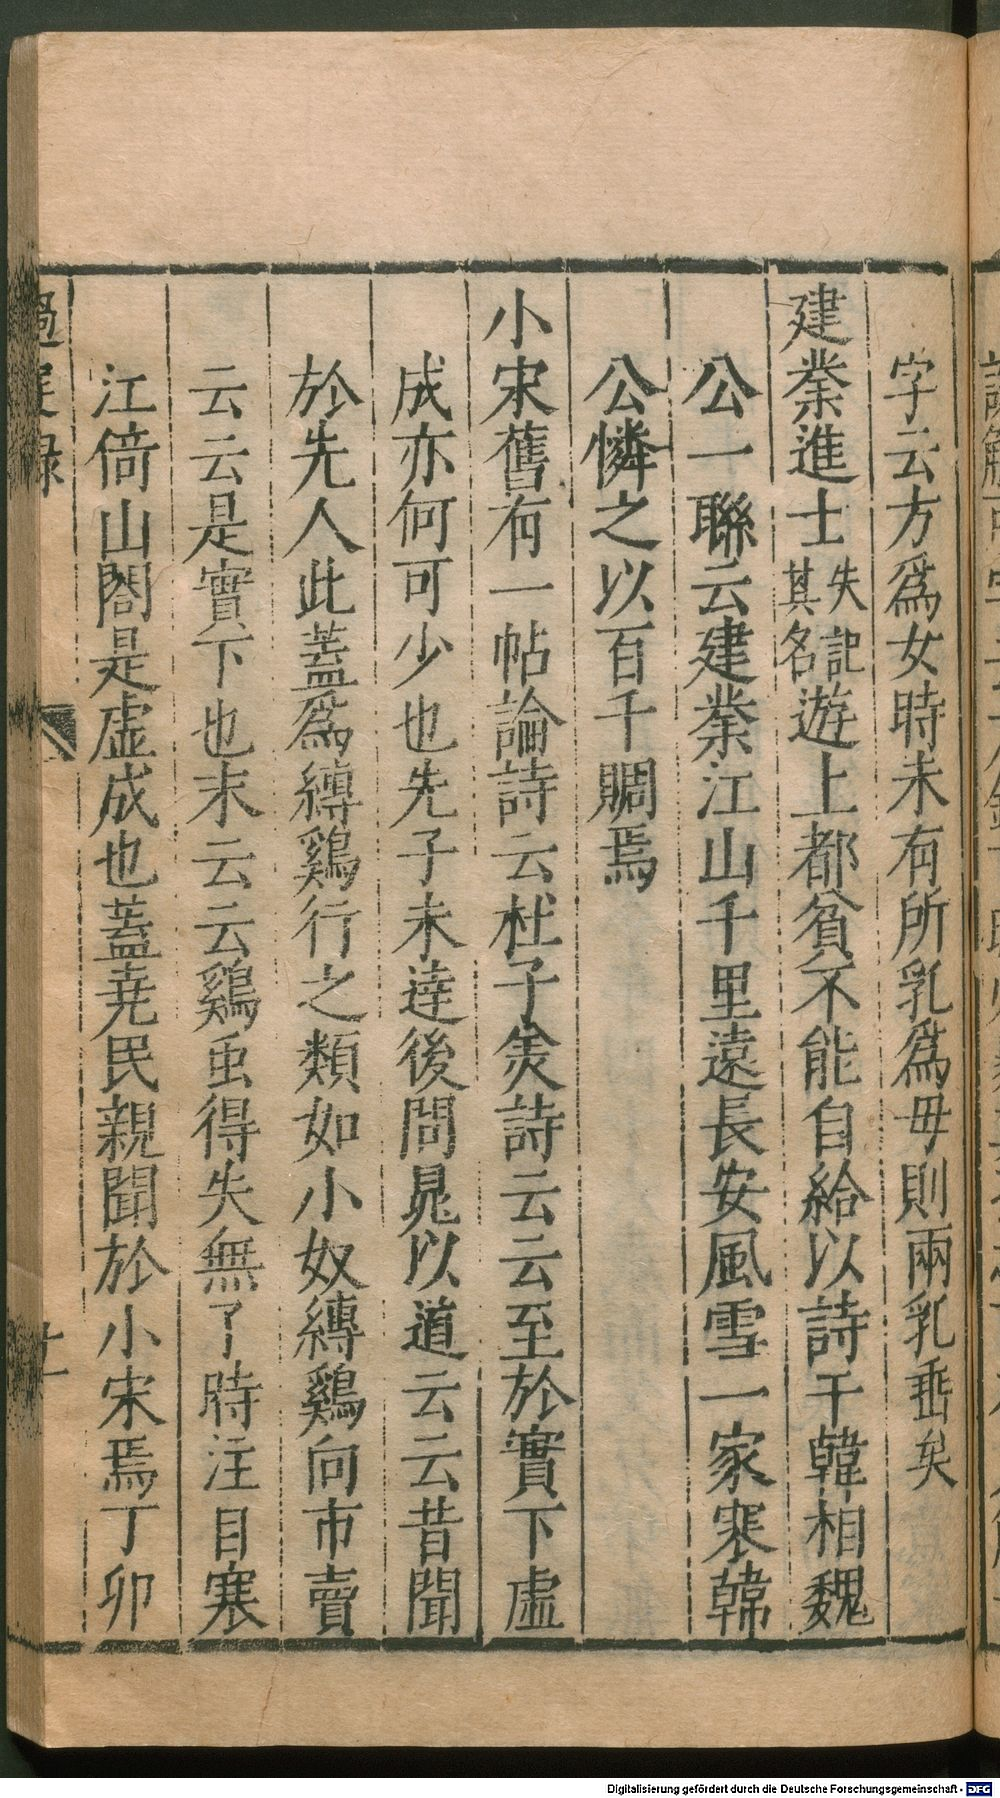 字云方爲女時未有所乳爲毋則兩乳垂矣
建業進士失記其名遊上都貧不能自給以詩干韓相魏
公一聯云建業江山千里遠長安風雪一家寒韓
公憐之以百千賙焉
小宋舊有一帖論詩云杜子美詩云云至於實下虛
成亦何可少也先子未達後問晁以道云云昔聞
於先人此蓋爲縛鷄行之類如小奴縛鷄向市賣
云云是實下也末云云鷄虫得失無了時注目寒
江倚山閣是虛成也蓋堯民親聞於小宋焉丁卯
過庭錄
Digitalisierung gefördert durch die Deutsche Forschungsgemeinschaft - DFG